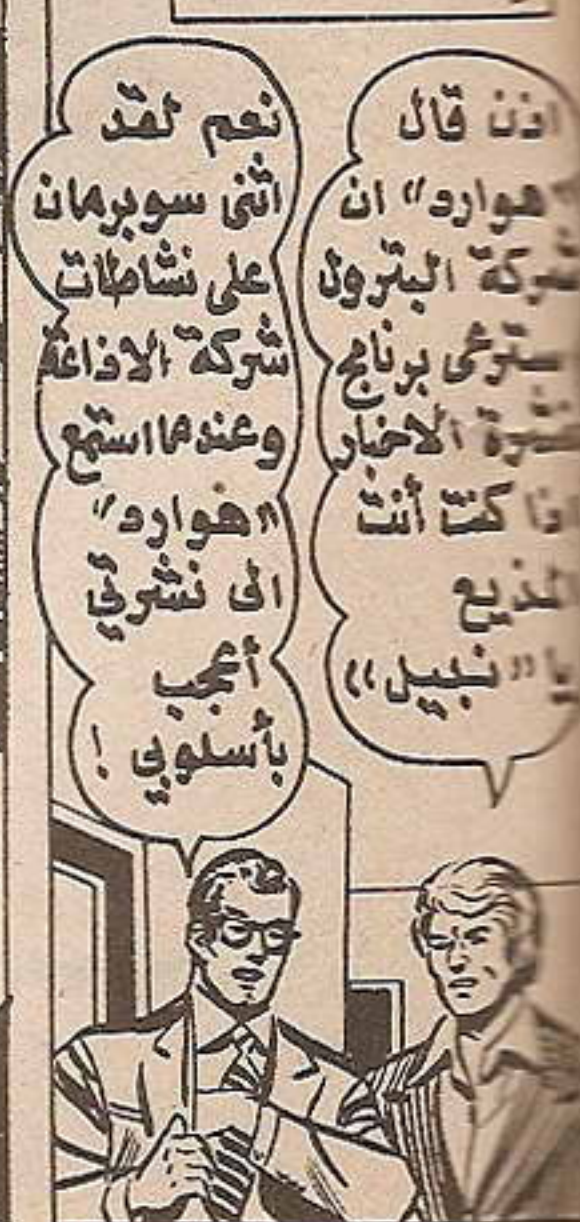 اذن قال
«هوارد» ان
شركة البترول
سترعى برنامج
نشرة الاخبار
اذا كنت أنت
المذيع
يا «نبيل»
نعم لقد
اثنى سوبرمان
على نشاطات
شركة الاذاعة
وعندما استمع
«هوارد»
الى نشرتي
أعجب
بأسلوبي !